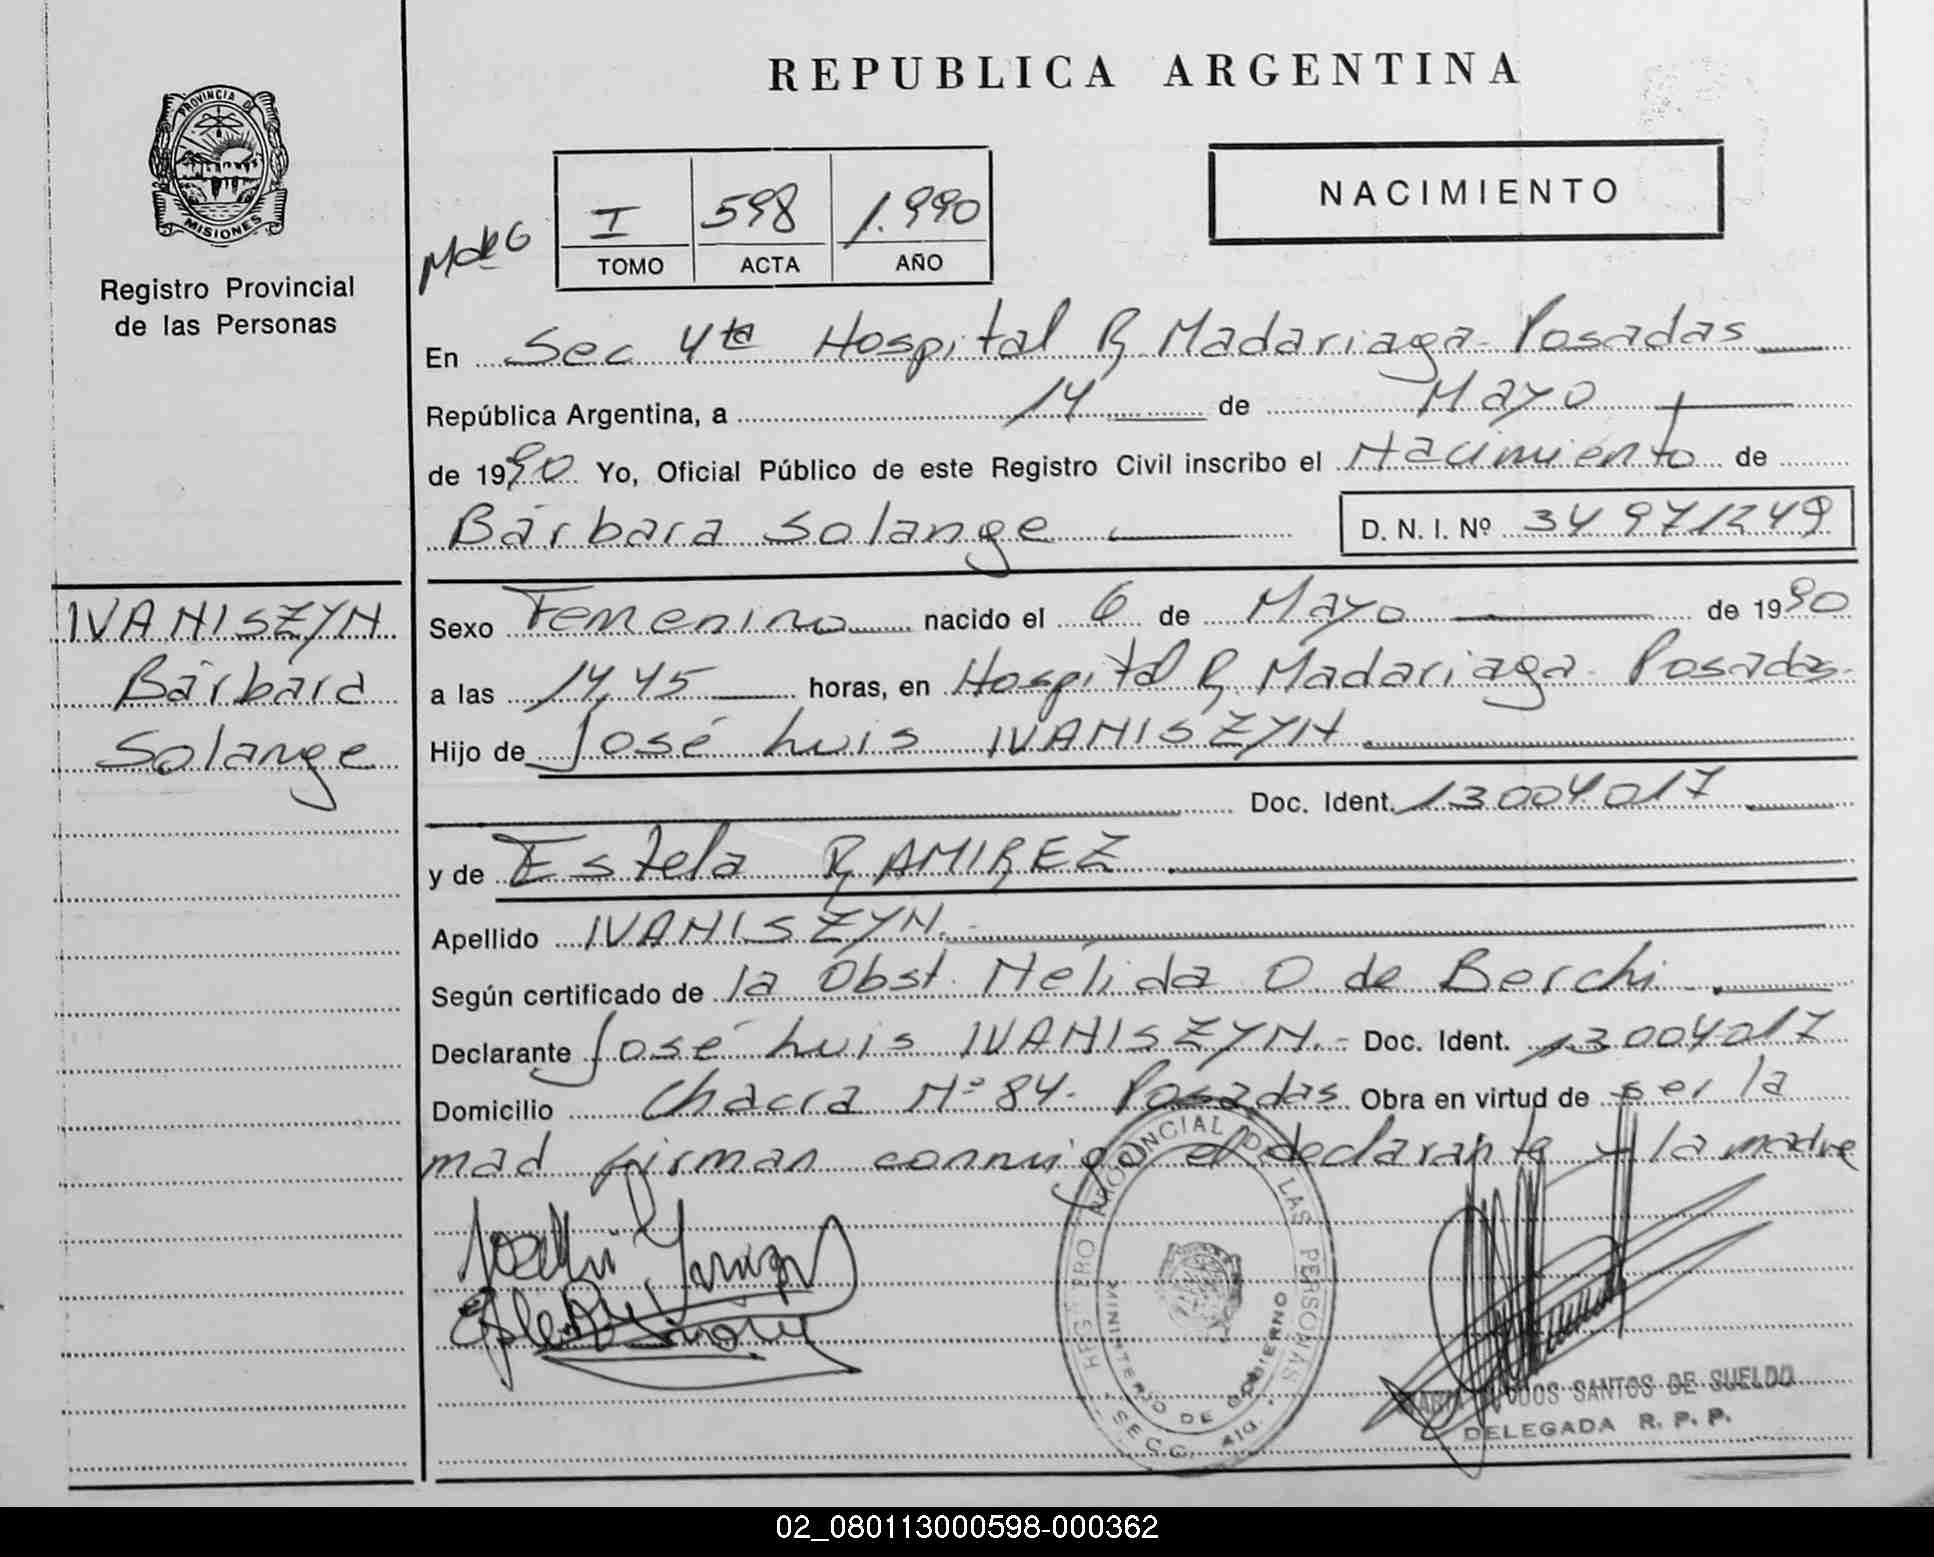 REPUBLICA ARGENTINA
PROVINCIA DE
MISIONES
Registro Provincial
de las Personas
NACIMIENTO
I 598 1.990
TOMO ACTA AÑO
En Sec 4ta Hospital R. Madariaga - Posadas
República Argentina, a 14 de Mayo
de 1990 Yo, Oficial Público de este Registro Civil inscribo el Nacimiento de
Bárbara Solange D. N. I. Nº 34 971249
IVANISZYN
Bárbara
Solange
Sexo Femenino nacido el 6 de Mayo de 1990
a las 14,45 horas, en Hospital R. Madariaga - Posadas.
Hijo de José Luis IVANISZYN
Doc. Ident. 13004017
y de Estela RAMIREZ
Apellido IVANISZYN.-
Según certificado de la Obst. Nélida O de Berchi.
Declarante José Luis IVANISZYN.- Doc. Ident. 13004017
Domicilio Chacra Nº 84 - Posadas Obra en virtud de ser la
mad firman conmigo el declarante y la madre
REGISTRO PROVINCIAL DE LAS PERSONAS
MINISTERIO DE GOBIERNO
SECC. 4ta.
DOS SANTOS DE SUELDO
DELEGADA R. P. P.
02_080113000598-000362